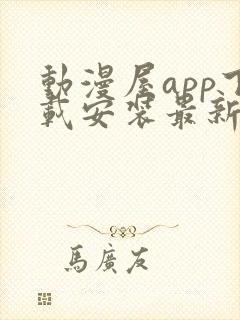 動漫屋app下
載安裝最新
馬廣友